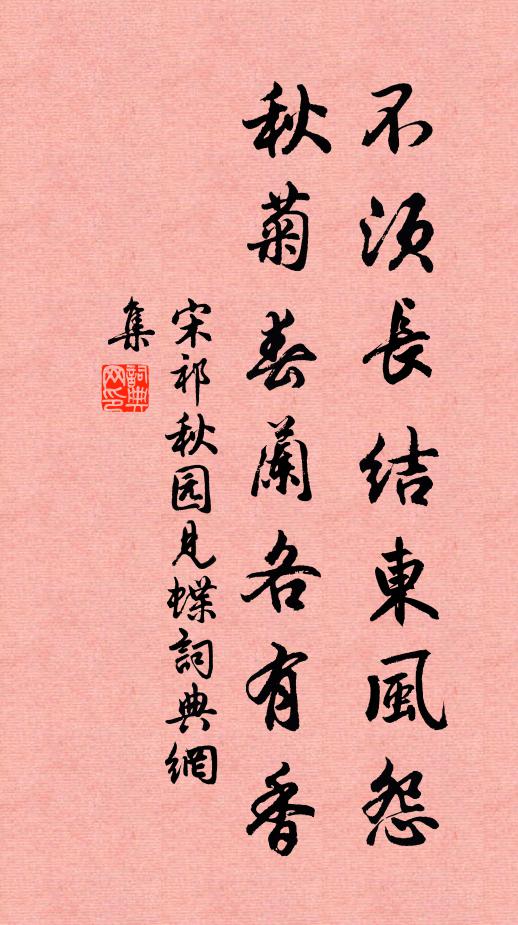 不須長結東風怨
秋菊春蘭各有香
宋祁秋园見蝶詞典網
集
詞典
网印